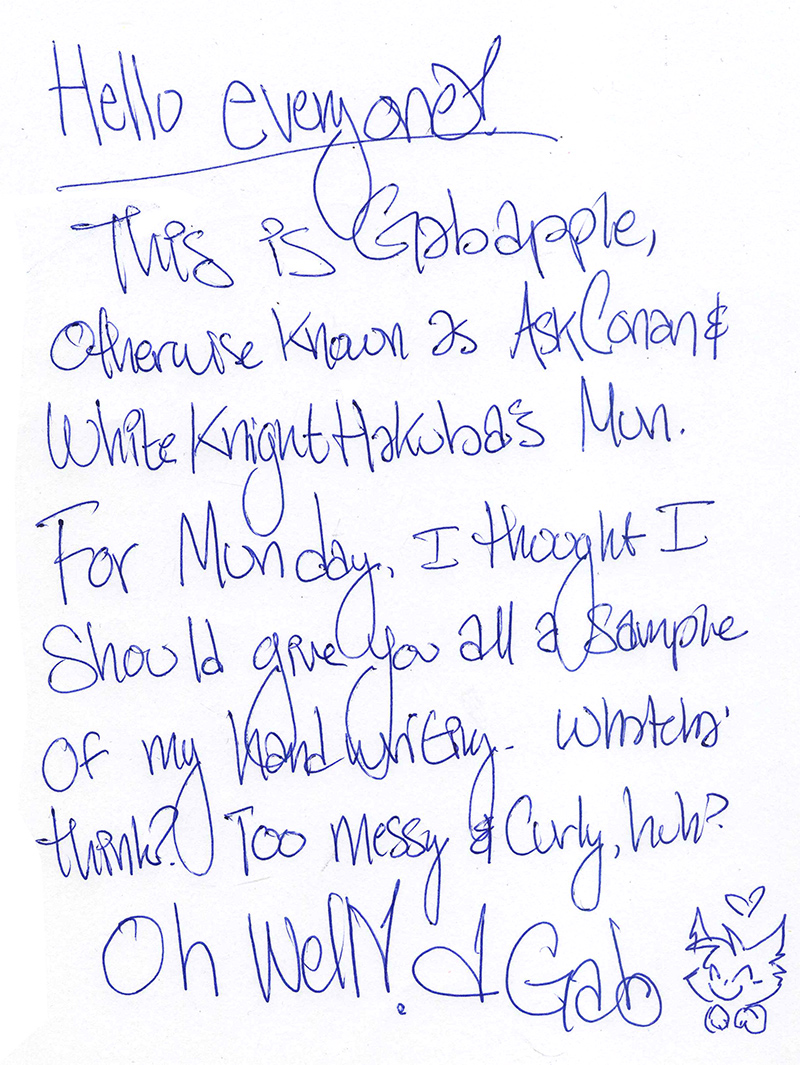 Hello everyone!
This is Gabapple,
Otherwise known as AskConan &
WhiteKnightHakuba's Mun.
For Munday, I thought I
Should give you all a sample
Of my handwriting. Whatcha'
think? Too messy & Curly, huh?
Oh Well! Gab